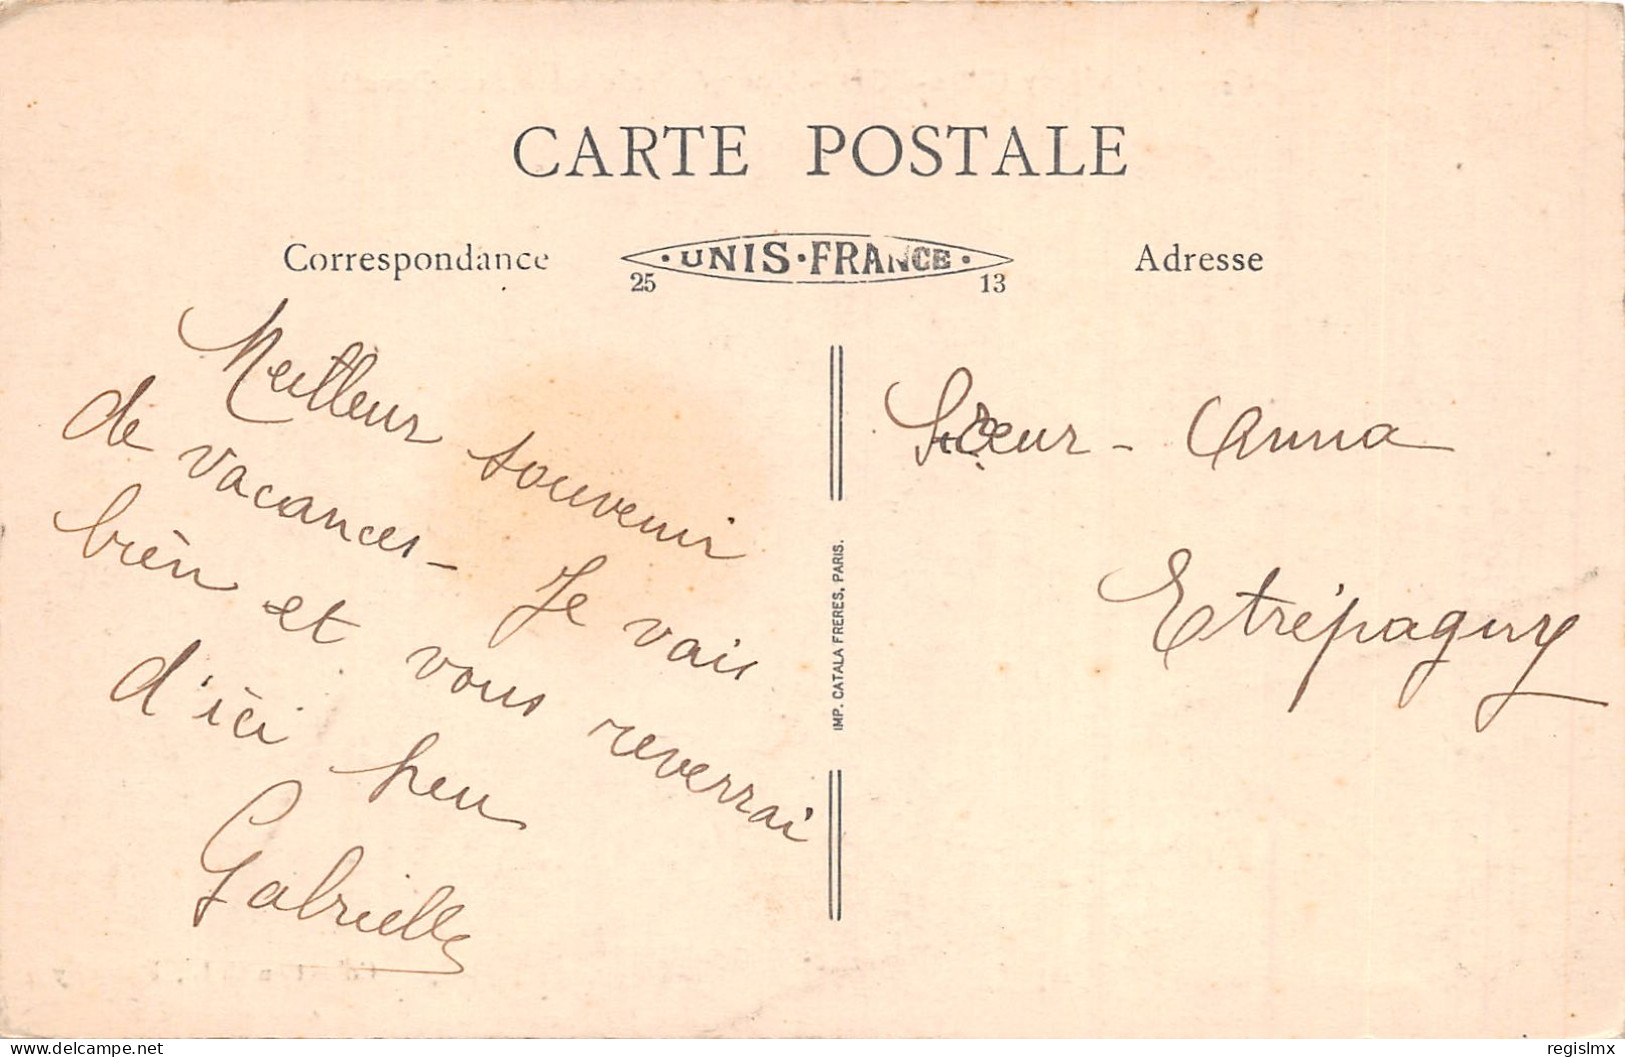 CARTE POSTALE
Correspondance
·UNIS·FRANCE·
25 13
Adresse
Meilleur souvenir
de vacances – Je vais
bien et vous reverrai
d'ici peu
Gabrielle
IMP. CATALA FRERES, PARIS.
Sœur – Anna
Etrépagny
delcampe.net
regislmx